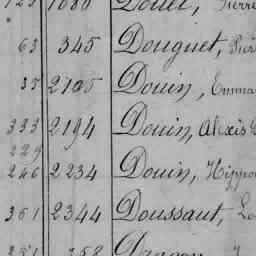 123 1080 Douet, Pierre
63 345 Douguet, Pier
35 2105 Douin, Emma
333 2194 Douin, Alexis
229
246 2234 Douin, Hippo
361 2344 Doussaut, Lo
251 358